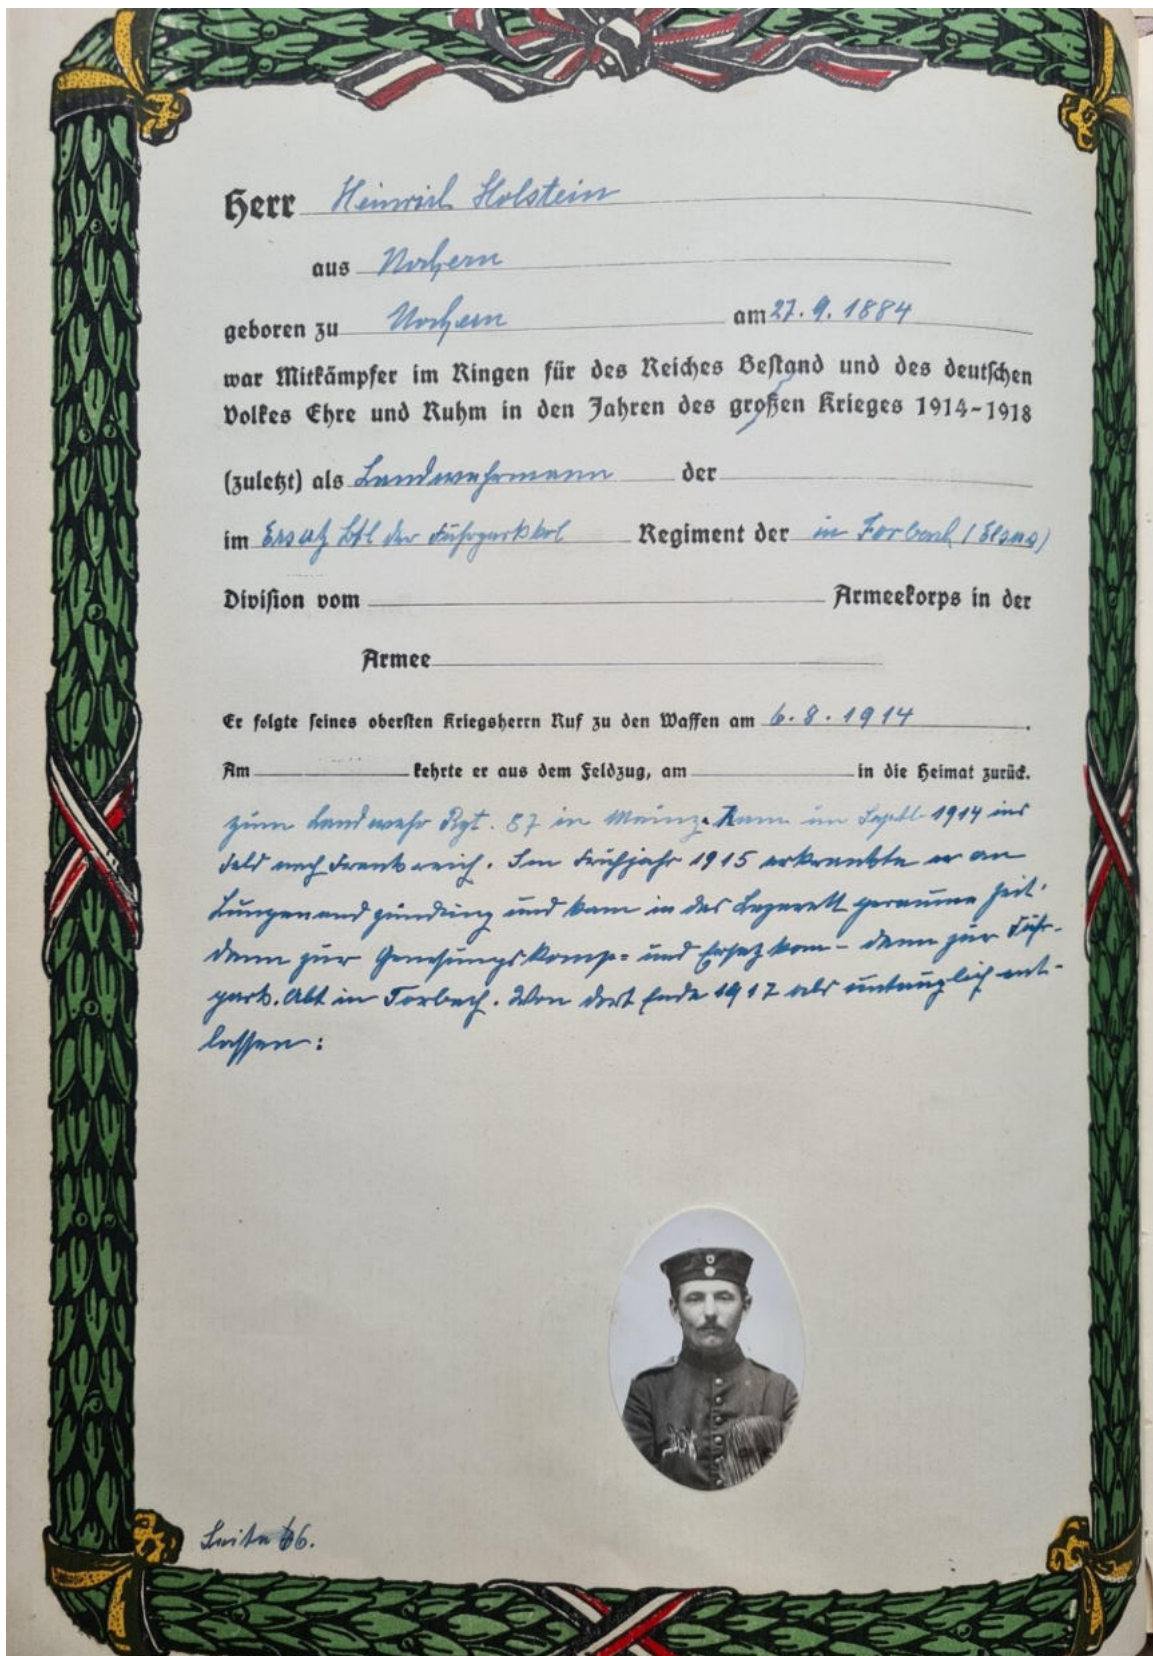 Herr Heinrich Holstein
aus Nochern
geboren zu Nochern am 27.9.1884
war Mitkämpfer im Ringen für des Reiches Bestand und des deutschen
Volkes Ehre und Ruhm in den Jahren des großen Krieges 1914-1918
(zuletzt) als Landwehrmann der
im Ersatz Btl der Fuhrparkkol Regiment der in Forbach (Elsas)
Division vom Armeekorps in der
Armee
Er folgte seines obersten Kriegsherrn Ruf zu den Waffen am 6.8.1914.
Am kehrte er aus dem Feldzug, am in die Heimat zurück.
zum Landwehr Rgt. 87 in Mainz. Kam im Septb. 1914 ins
Feld nach Frankreich. Im Frühjahr 1915 erkrankte er an
Lungenendzündung und kam in das Lazarett geraume Zeit.
dann zur Genesungskomp= und Ersatzkom- dann zur Fuhr-
park. Abt in Forbach. Von dort Ende 1917 als untauglich ent-
lassen:
Seite 66.